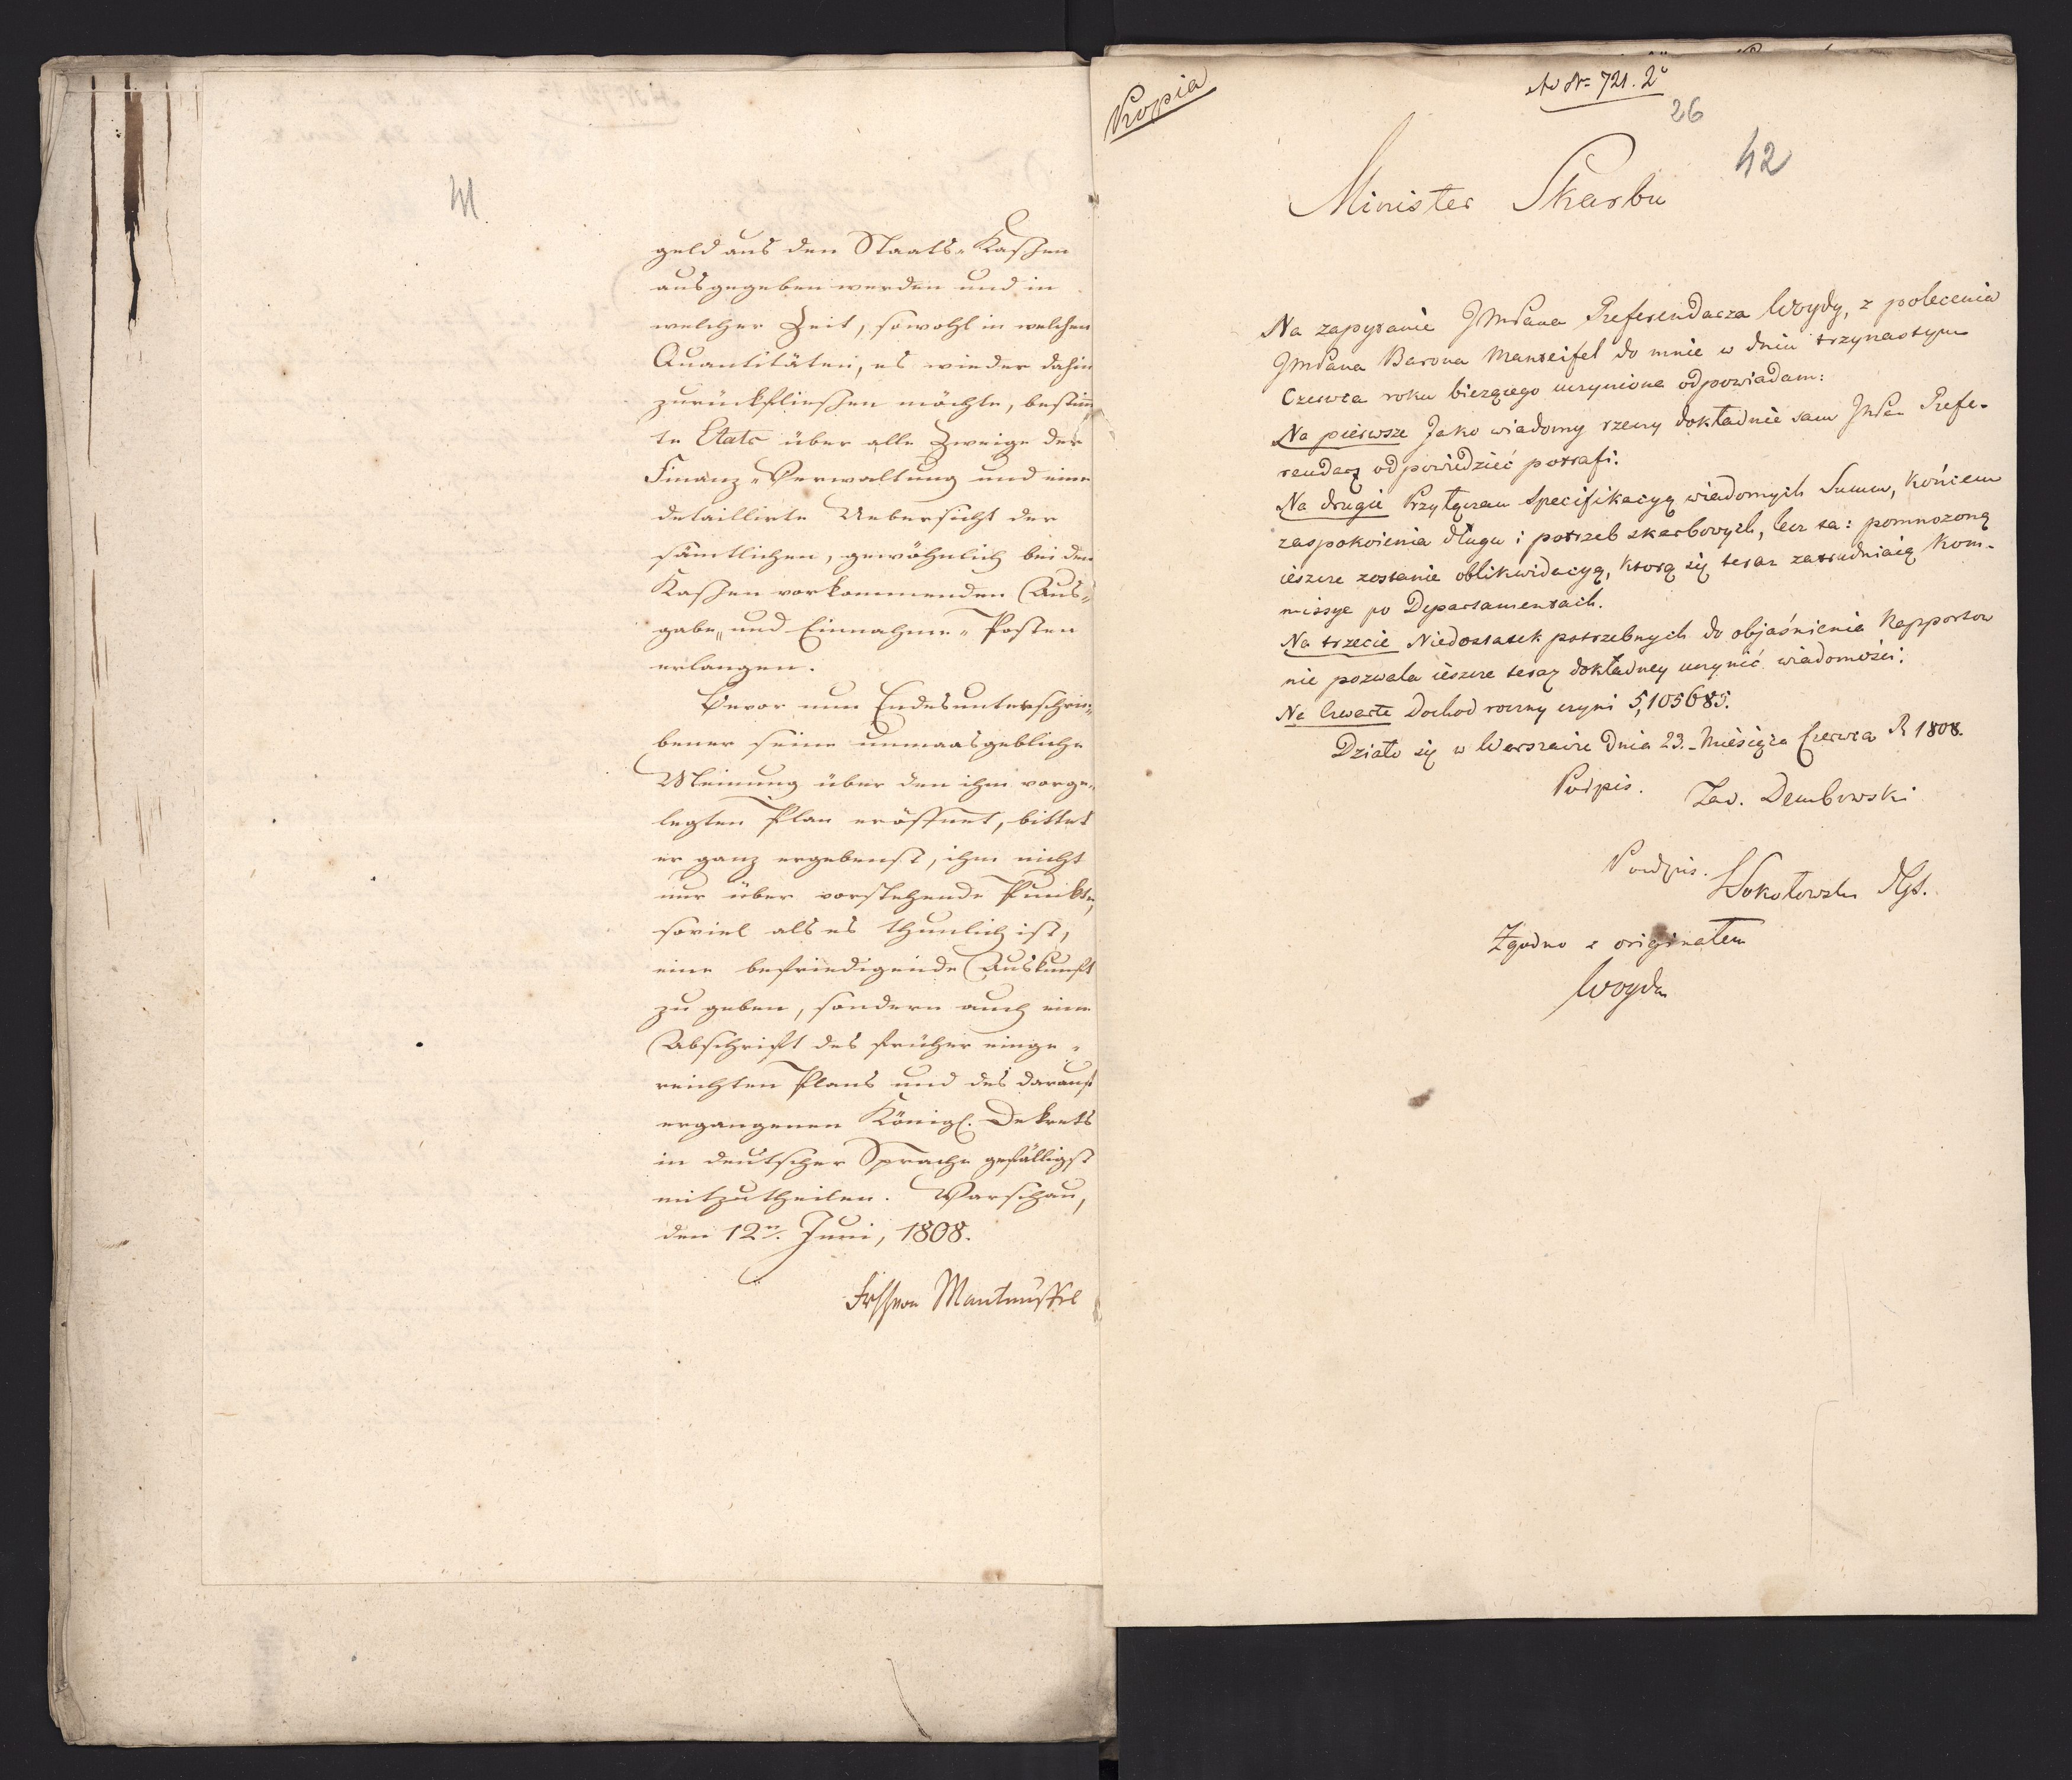 41
geld aus den Staats-Kaßen
ausgegeben werden und in
welcher Zeit, sowohl in welchen
Quantitäten, es wieder dahin
zurückfließen möchte, bestim̅
te Etats über alle Zweige der
Finanz-Verwaltung und eine
detaillirte Uebersicht der
sämtlichen, gewöhnlich bei den
Kaßen vorkommenden Aus-
gabe- und Einnahme-Posten
erlangen.
Bevor nun Endesunterschrie-
bener seine unmaasgebliche
Meinung über den ihm vorge-
legten Plan eröffnet, bittet
er ganz ergebenst, ihm nicht
nur über vorstehende Punkte,
soviel als es thunlich ist,
eine befriedigende Auskunft
zu geben, sondern auch eine
Abschrift des früher einge-
reichten Plans und des darauf
ergangenen Königl. Dekrets
in deutscher Sprache gefälligst
mitzutheilen. Warschau,
den 12n. Juni, 1808.
Manteuffel
Kopia
Ad Nr 721. 2o
26
42
Minister Skarbu
Na zapytanie JmPana Referendarza Woydy, z polecenia
JmPana Barona Manteifel do mnie w dniu trzynastym
Czerwca roku bieżącego uczynione odpowiadam:
Na pierwsze Jako wiadomy rzeczy dokładnie sam JmPan Refe-
rendarz odpowiedzieć potrafi.
Na drugie Przyłączam Specifikacyą wiadomych Summ, końcem
zaspokoienia długu i potrzeb skarbowych, lecz ta: pomnożoną
ieszcze zostanie oblikwidacyą, ktorą się teraz zatrudniaią Kom-
missye po Departamentach.
Na trzecie Niedostatek potrzebnych do objaśnienia Rapportow
nie pozwala ieszcze teraz dokładney uczynić wiadomości.
Na Czwarte Dochod roczny czyni 5,105685.
Działo się w Warszawie Dnia 23. Miesiąca Czerwca R 1808.
Podpis. Tad. Dembowski
Podpis. Sokołowski
Zgodno z originałem
Woyda